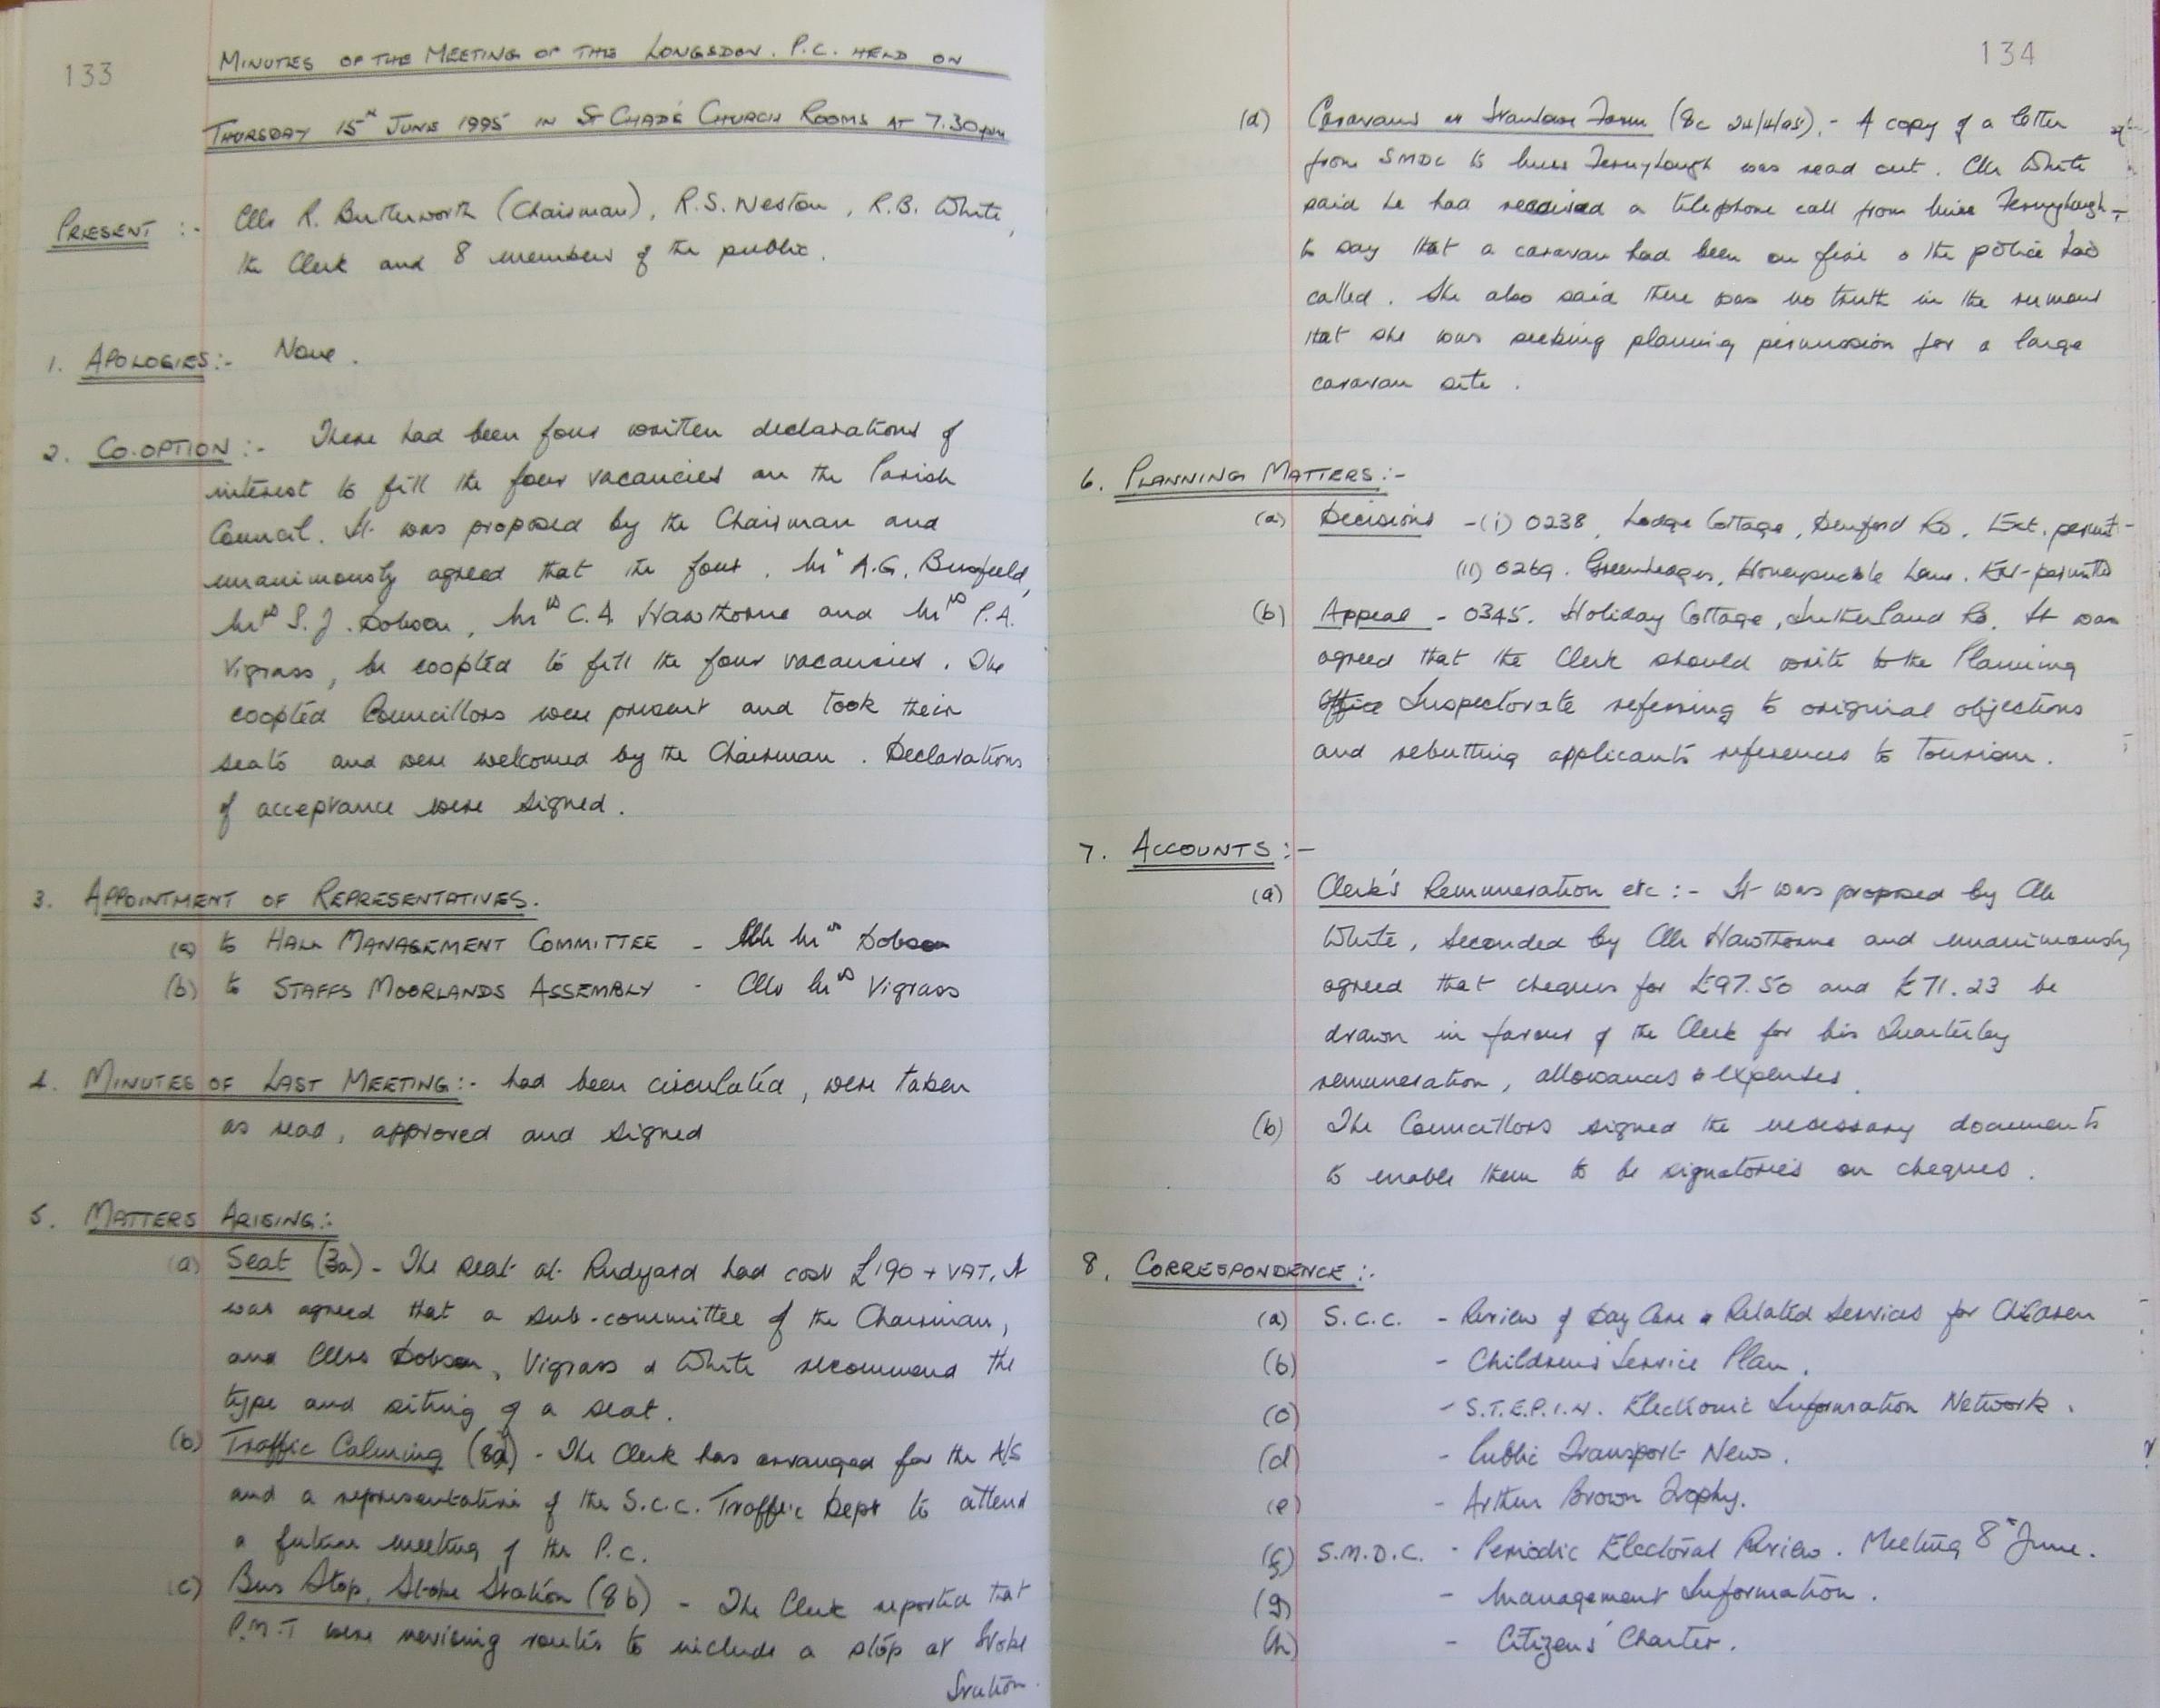 133
MINUTES OF THE MEETING OF THE LONGSDON. P.C. HELD ON
THURSDAY 15th JUNE 1995 IN ST CHAD'S CHURCH ROOMS AT 7.30pm
PRESENT :- Cllrs R. Butterworth (Chairman), R.S. Weston, R.B. White,
the Clerk and 8 members of the public.
1. APOLOGIES:- None.
2. CO-OPTION:- There had been four written declarations of
interest to fill the four vacancies on the Parish
Council. It was proposed by the Chairman and
unanimously agreed that the four, Mr A.G.
Mrs S.J. Dobson, Mrs C.A. Hawthorne and Mrs P.A.
Vigrass, be coopted to fill the four vacancies. The
coopted Councillors were present and took their
seats and were welcomed by the Chairman. Declarations
of acceptance were signed.
3. APPOINTMENT OF REPRESENTATIVES.
(a) to HALL MANAGEMENT COMMITTEE - Cllr Mrs Dobson
(b) to STAFFS MOORLANDS ASSEMBLY - Cllr Mrs Vigrass
4. MINUTES OF LAST MEETING:- had been circulated, were taken
as read, approved and signed
5. MATTERS ARISING:-
(a) Seat (3a) - The seat at Rudyard had cost £190 + VAT. It
was agreed that a sub-committee of the Chairman,
and Cllrs Dobson, Vigrass & White recommend the
type and siting of a seat.
(b) Traffic Calming (8a) - The Clerk has arranged for the A/S
and a representative of the S.C.C. Traffic Dept to attend
a future meeting of the P.C.
(c) Bus Stop, Stoke Station (8b) - The Clerk reported that
P.M.T were revising routes to include a stop at Stoke
Station.
134
(d) Caravans at Farm (8c 24/4/95).- A copy of a letter
from SMDC to Miss Fernyhough was read out. Cllr White
said he had received a telephone call from Miss Fernyhough
to say that a caravan had been on fire & the police had
called. She also said there was no truth in the rumour
that she was seeking planning permission for a large
caravan site.
6. PLANNING MATTERS:-
(a) Decisions - (i) 0238, Lodge Cottage, Denford Rd. Ext. permit
(ii) 0269. Greenhedges, Honeysuckle Lane. Ext-permitted
(b) Appeal - 0345. Holiday Cottage, Sutherland Rd. It was
agreed that the Clerk should write to the Planning
Office Inspectorate referring to original objections
and rebutting applicants references to tourism.
7. ACCOUNTS:-
(a) Clerk's Remuneration etc:- It was proposed by Cllr
White, seconded by Cllr Hawthorne and unanimously
agreed that cheques for £97.50 and £71.23 be
drawn in favour of the Clerk for his Quarterley
remuneration, allowances & expenses.
(b) The Councillors signed the necessary documents
to enable them to be signatories on cheques.
8. CORRESPONDENCE:-
(a) S.C.C. - Review of Day Care & Related Services for Children
(b) - Childrens' Service Plan.
(c) - S.T.E.P.I.N. Electronic Information Network.
(d) - Public Transport News.
(e) - Arthur Brown Trophy.
(f) S.M.D.C. - Periodic Electoral Review. Meeting 8th June.
(g) - Management Information.
(h) - Citizens' Charter.